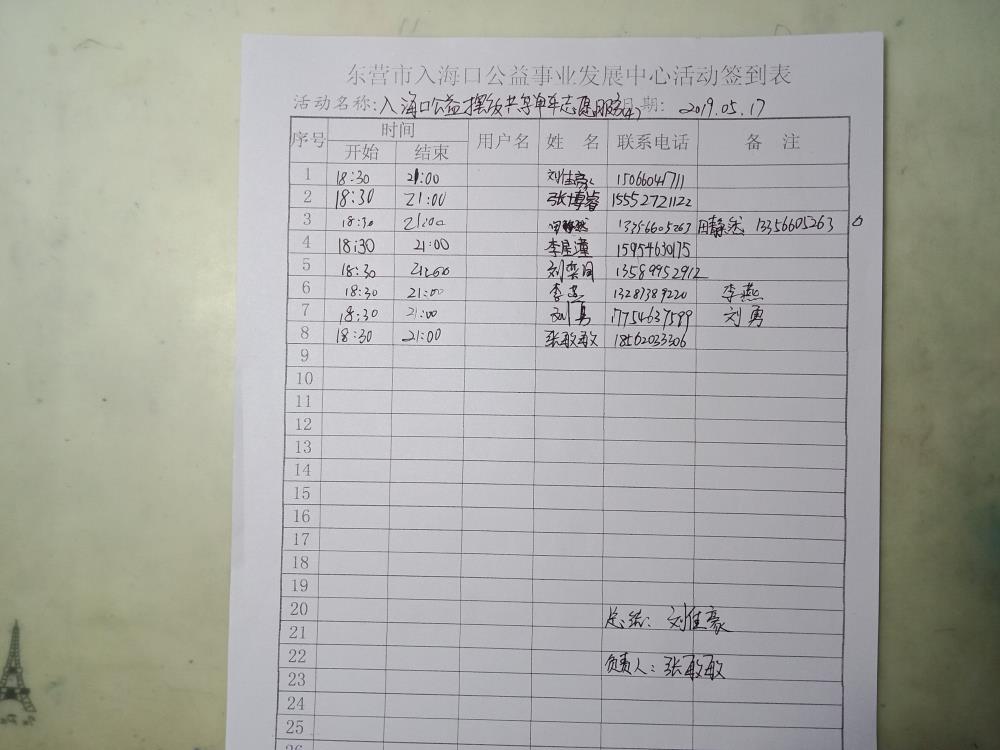 东营市入海口公益事业发展中心活动签到表
活动名称:入海口公益摆放共享单车志愿服务(4) 日期: 2019.05.17
序号 时间 用户名 姓 名 联系电话 备 注
开始 结束
1 18:30 21:00 刘佳豪 15066041711
2 18:30 21:00 张博睿 15552721122
3 18:30 21:00 田静然 13356605263 田静然 13356605263
4 18:30 21:00 李星潼 15954630175
5 18:30 21:00 刘奕同 13589952912
6 18:30 21:00 李燕 13287389220 李燕
7 18:30 21:00 刘勇 17754637599 刘勇
8 18:30 21:00 张敢敢 18562033306
9
10
11
12
13
14
15
16
17
18
19
20 总结: 刘佳豪
21
22 负责人: 张敢敢
23
24
25
26